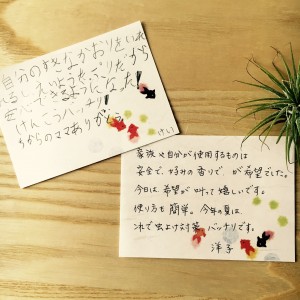 自分のすきなかおりをいれ
れるし
たから
なった!
けんこうバッチリ!
ママありがとう
けい
家族や自分が使用するものは
安全で、好みの香りで、が希望でした。
今日は、希望が叶って嬉しいです。
使り方も簡単。今年の夏は、
これで虫よけ対策バッチリです。
洋子